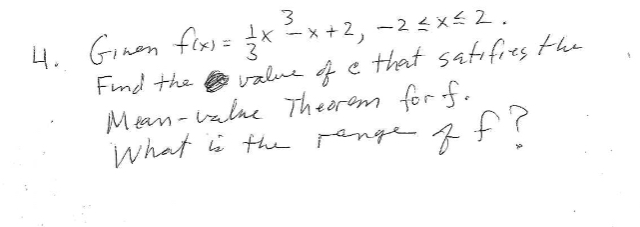 4. Given f(x) = 1/3 x³ - x + 2, -2 ≤ x ≤ 2.
Find the value of c that satisfies the
Mean-value Theorem for f.
What is the range of f?